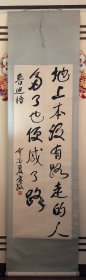 地上本没有路走的人
多了也便成了路
鲁迅